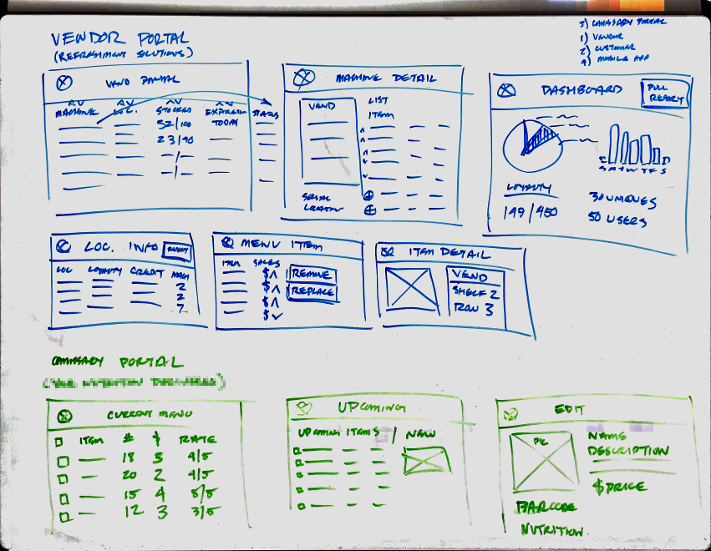 VENDOR PORTAL
(REFRESHMENT SOLUTIONS)
3) COMMISSARY PORTAL
1) VENDOR
2) CUSTOMER
4) MOBILE APP
VEND PORTAL
MACHINE LOC. STOCKED EXPIRED TODAY STATUS
52/100
23/90
MACHINE DETAIL
VEND
LIST
ITEM
SERIAL
LOCATION
DASHBOARD
PULL REPORT
S M T W T F S
LOYALTY
149/450
30 MOVES
50 USERS
LOC. INFO
LOC LOYALTY CREDIT MACH
2
2
7
MENU ITEM
ITEM SALES
$
$
$
$
REMOVE
REPLACE
ITEM DETAIL
VEND
SHELF 2
ROW 3
COMMISSARY PORTAL
CURRENT MENU
ITEM # $ RATE
18 5 4/5
20 2 4/5
15 4 5/5
12 3 3/5
UPCOMING
UPCOMING ITEMS / NEW
EDIT
PIC
NAME
DESCRIPTION
$ PRICE
BARCODE
NUTRITION